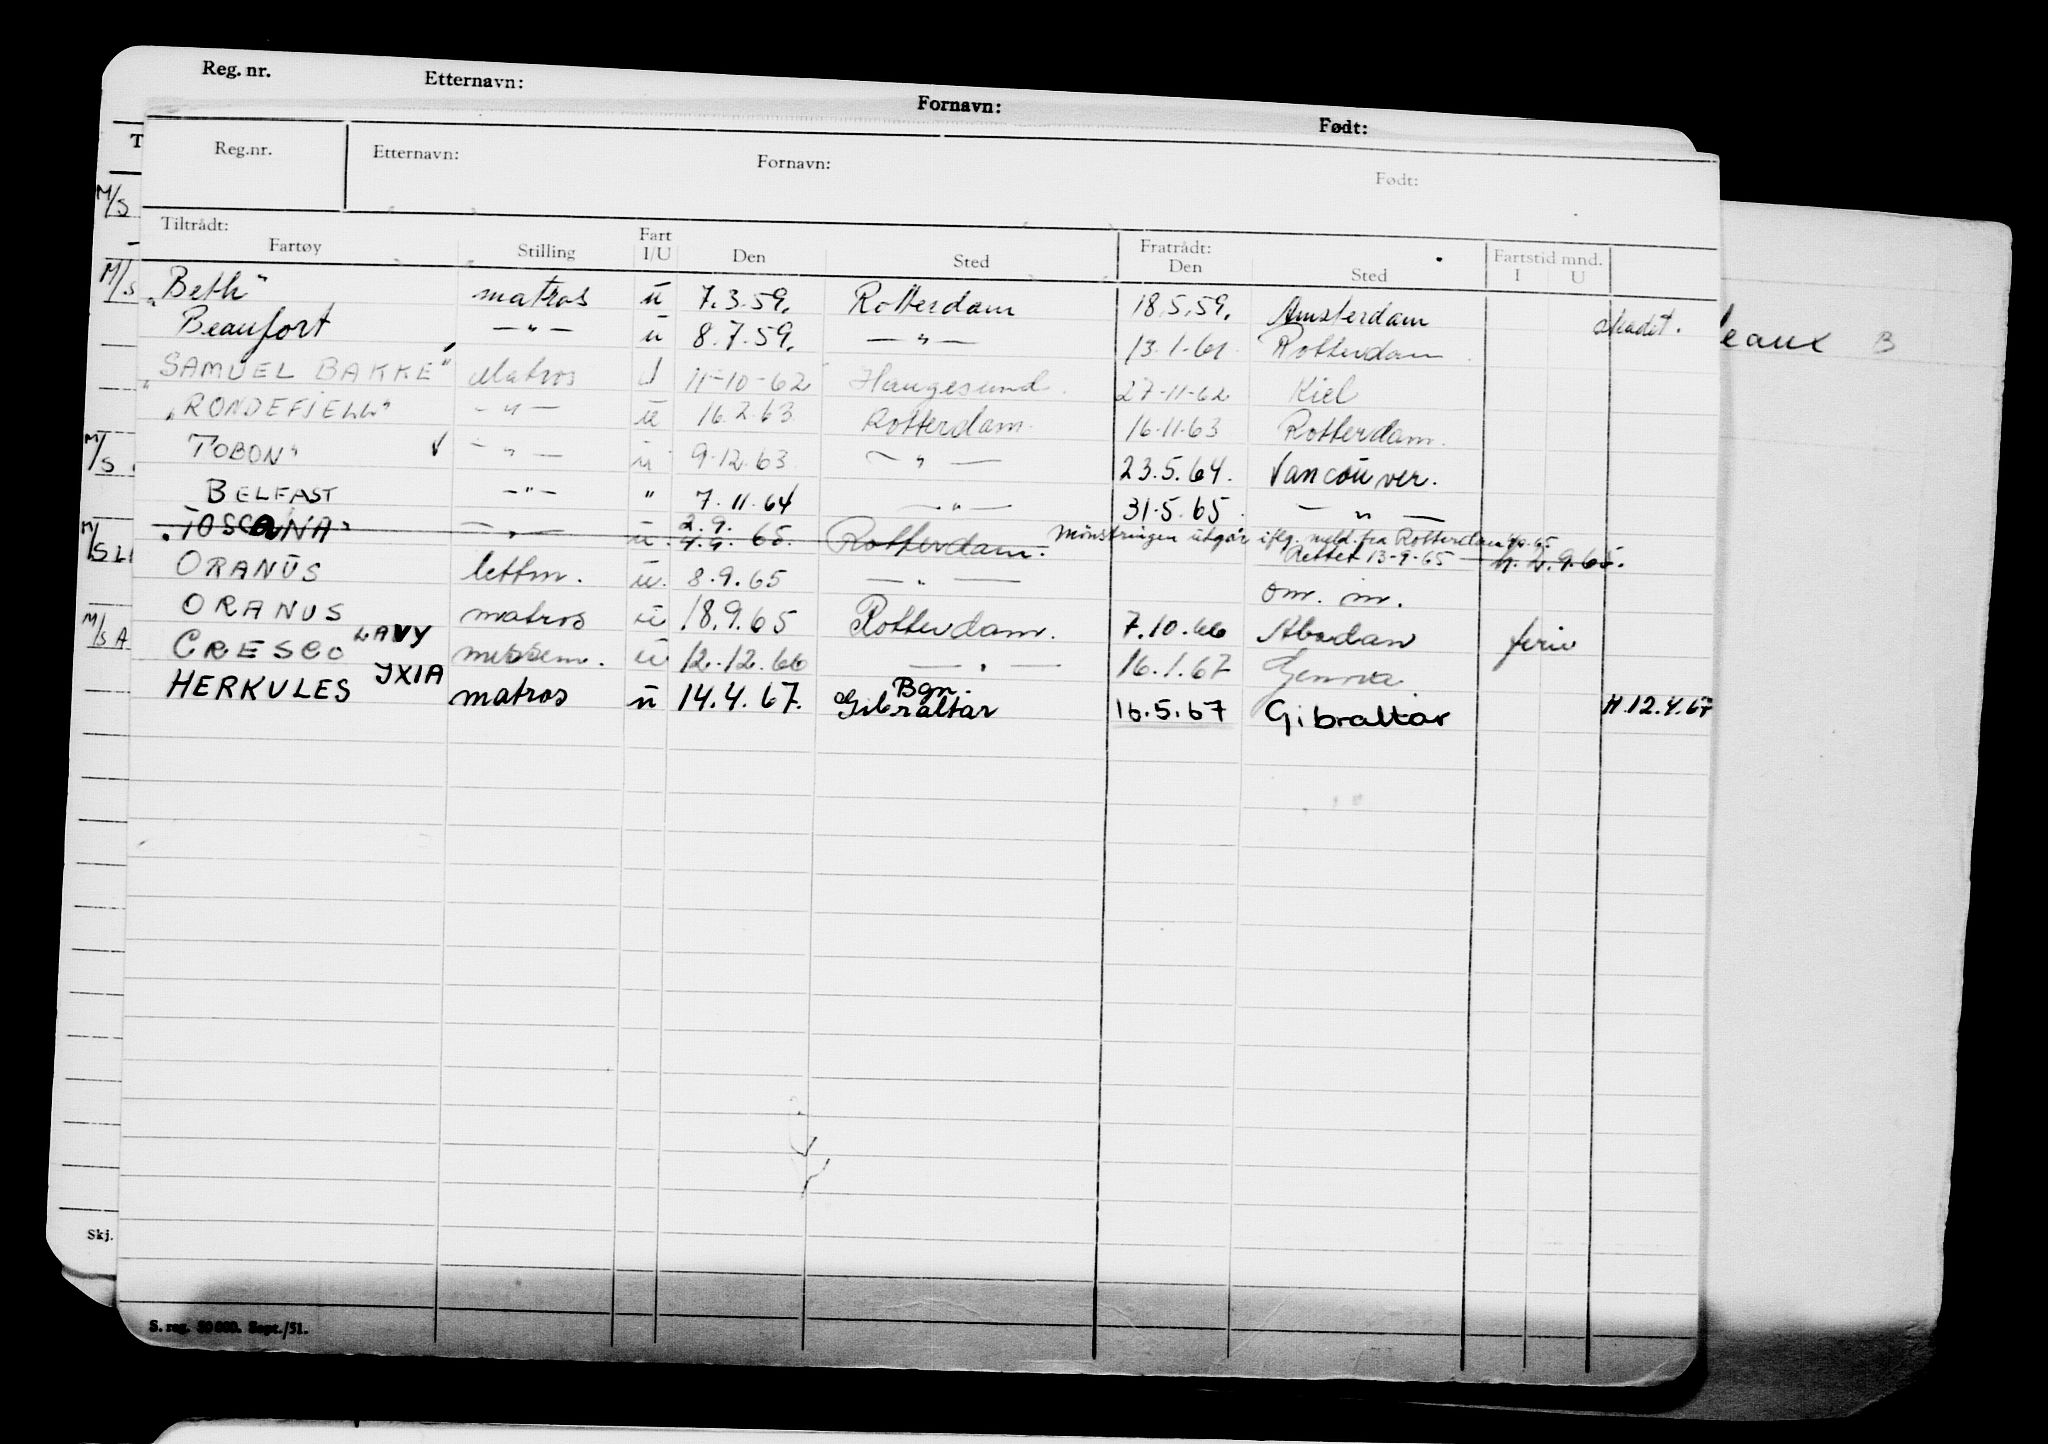 Reg. nr. Etternavn: Fornavn: Født:
Reg.nr. Etternavn: Fornavn: Født:
Tiltrådt: Fart Fratrådt: Fartstid mnd.
Fartøy Stilling I/U Den Sted Den Sted I U
„Beth" matros u 7.3.59. Rotterdam 18.5.59. Amsterdam skadet.
Beaufort — " — u 8.7.59. — " — 13.1.61. Rotterdam
„SAMUEL BAKKE" Matros U 11-10-62 Haugesund. 27-11-62 Kiel
„RONDEFJELL" — " — u 16.2.63 Rotterdam. 16.11.63 Rotterdam.
TOBON" √ — " — u 9.12.63 — " — 23.5.64. Vancouver.
BELFAST — " — " 7.11.64 — " — 31.5.65. — " —
TOSCANA" — " — u. 2.9. 4.9. 65. Rotterdam. Mönstringen utgår iflg. meld. fra Rotterdam
Rettet 13-9-65 — h. 2.9.65.
ORANUS lettm. u. 8.9.65 — " — om. m.
ORANUS matros u 18.9.65 Rotterdam. 7.10.66 Abadan ferie
CRESCO LAVY messem. u 12.12.66 — " — 16.1.67 Genova.
HERKULES YXIA matros u 14.4.67. Bgn. Gibraltar 16.5.67 Gibraltar H.12.4.67
S. reg. 50 000. Sept./51.
Skj.
M/S
M/S
M/S
M/S LI
M/S A
eaux B